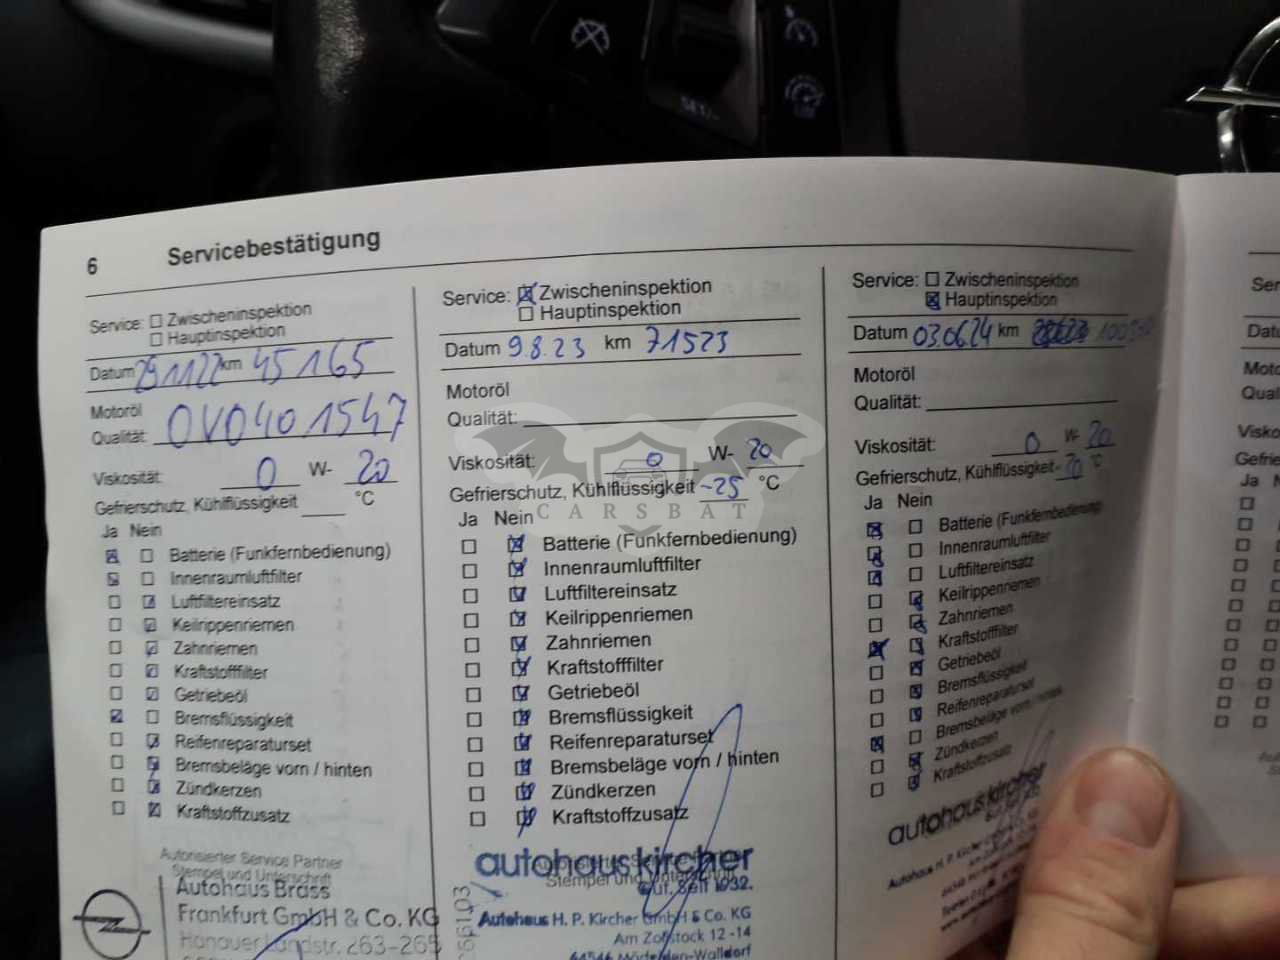 SET/-
6 Servicebestätigung
Service: Zwischeninspektion
Hauptinspektion
Datum 29.11.22 km 45165
Motoröl
Qualität: OV0401547
Viskosität: 0 W- 20
Gefrierschutz, Kühlflüssigkeit °C
Ja Nein
Batterie (Funkfernbedienung)
Innenraumluftfilter
Luftfiltereinsatz
Keilrippenriemen
Zahnriemen
Kraftstofffilter
Getriebeöl
Bremsflüssigkeit
Reifenreparaturset
Bremsbeläge vorn / hinten
Zündkerzen
Kraftstoffzusatz
Autorisierter Service Partner
Stempel und Unterschrift
Autohaus Brass
Frankfurt GmbH & Co. KG
Hanauer Landstr. 263-265
Service: Zwischeninspektion
Hauptinspektion
Datum 9.8.23 km 71523
Motoröl
Qualität:
Viskosität: 0 W- 20
Gefrierschutz, Kühlflüssigkeit -25 °C
CARSBAT
Ja Nein
Batterie (Funkfernbedienung)
Innenraumluftfilter
Luftfiltereinsatz
Keilrippenriemen
Zahnriemen
Kraftstofffilter
Getriebeöl
Bremsflüssigkeit
Reifenreparaturset
Bremsbeläge vorn / hinten
Zündkerzen
Kraftstoffzusatz
autohaus kircher
Stempel und Unterschrift
Gut. Seit 1932.
Autohaus H. P. Kircher GmbH & Co. KG
Am Zollstock 12-14
64546 Mörfelden-Walldorf
Service: Zwischeninspektion
Hauptinspektion
Datum 03.06.24 km
Motoröl
Qualität:
Viskosität: 0 W- 20
Gefrierschutz, Kühlflüssigkeit °C
Ja Nein
Batterie (Funkfernbedienung)
Innenraumluftfilter
Luftfiltereinsatz
Keilrippenriemen
Zahnriemen
Kraftstofffilter
Getriebeöl
Bremsflüssigkeit
Reifenreparaturset
Bremsbeläge vorn / hinten
Zündkerzen
Kraftstoffzusatz
autohaus kircher
Autohaus H. P. Kircher
Ser
Dat
Moto
Qual
Visko
Gefrie
Ja N